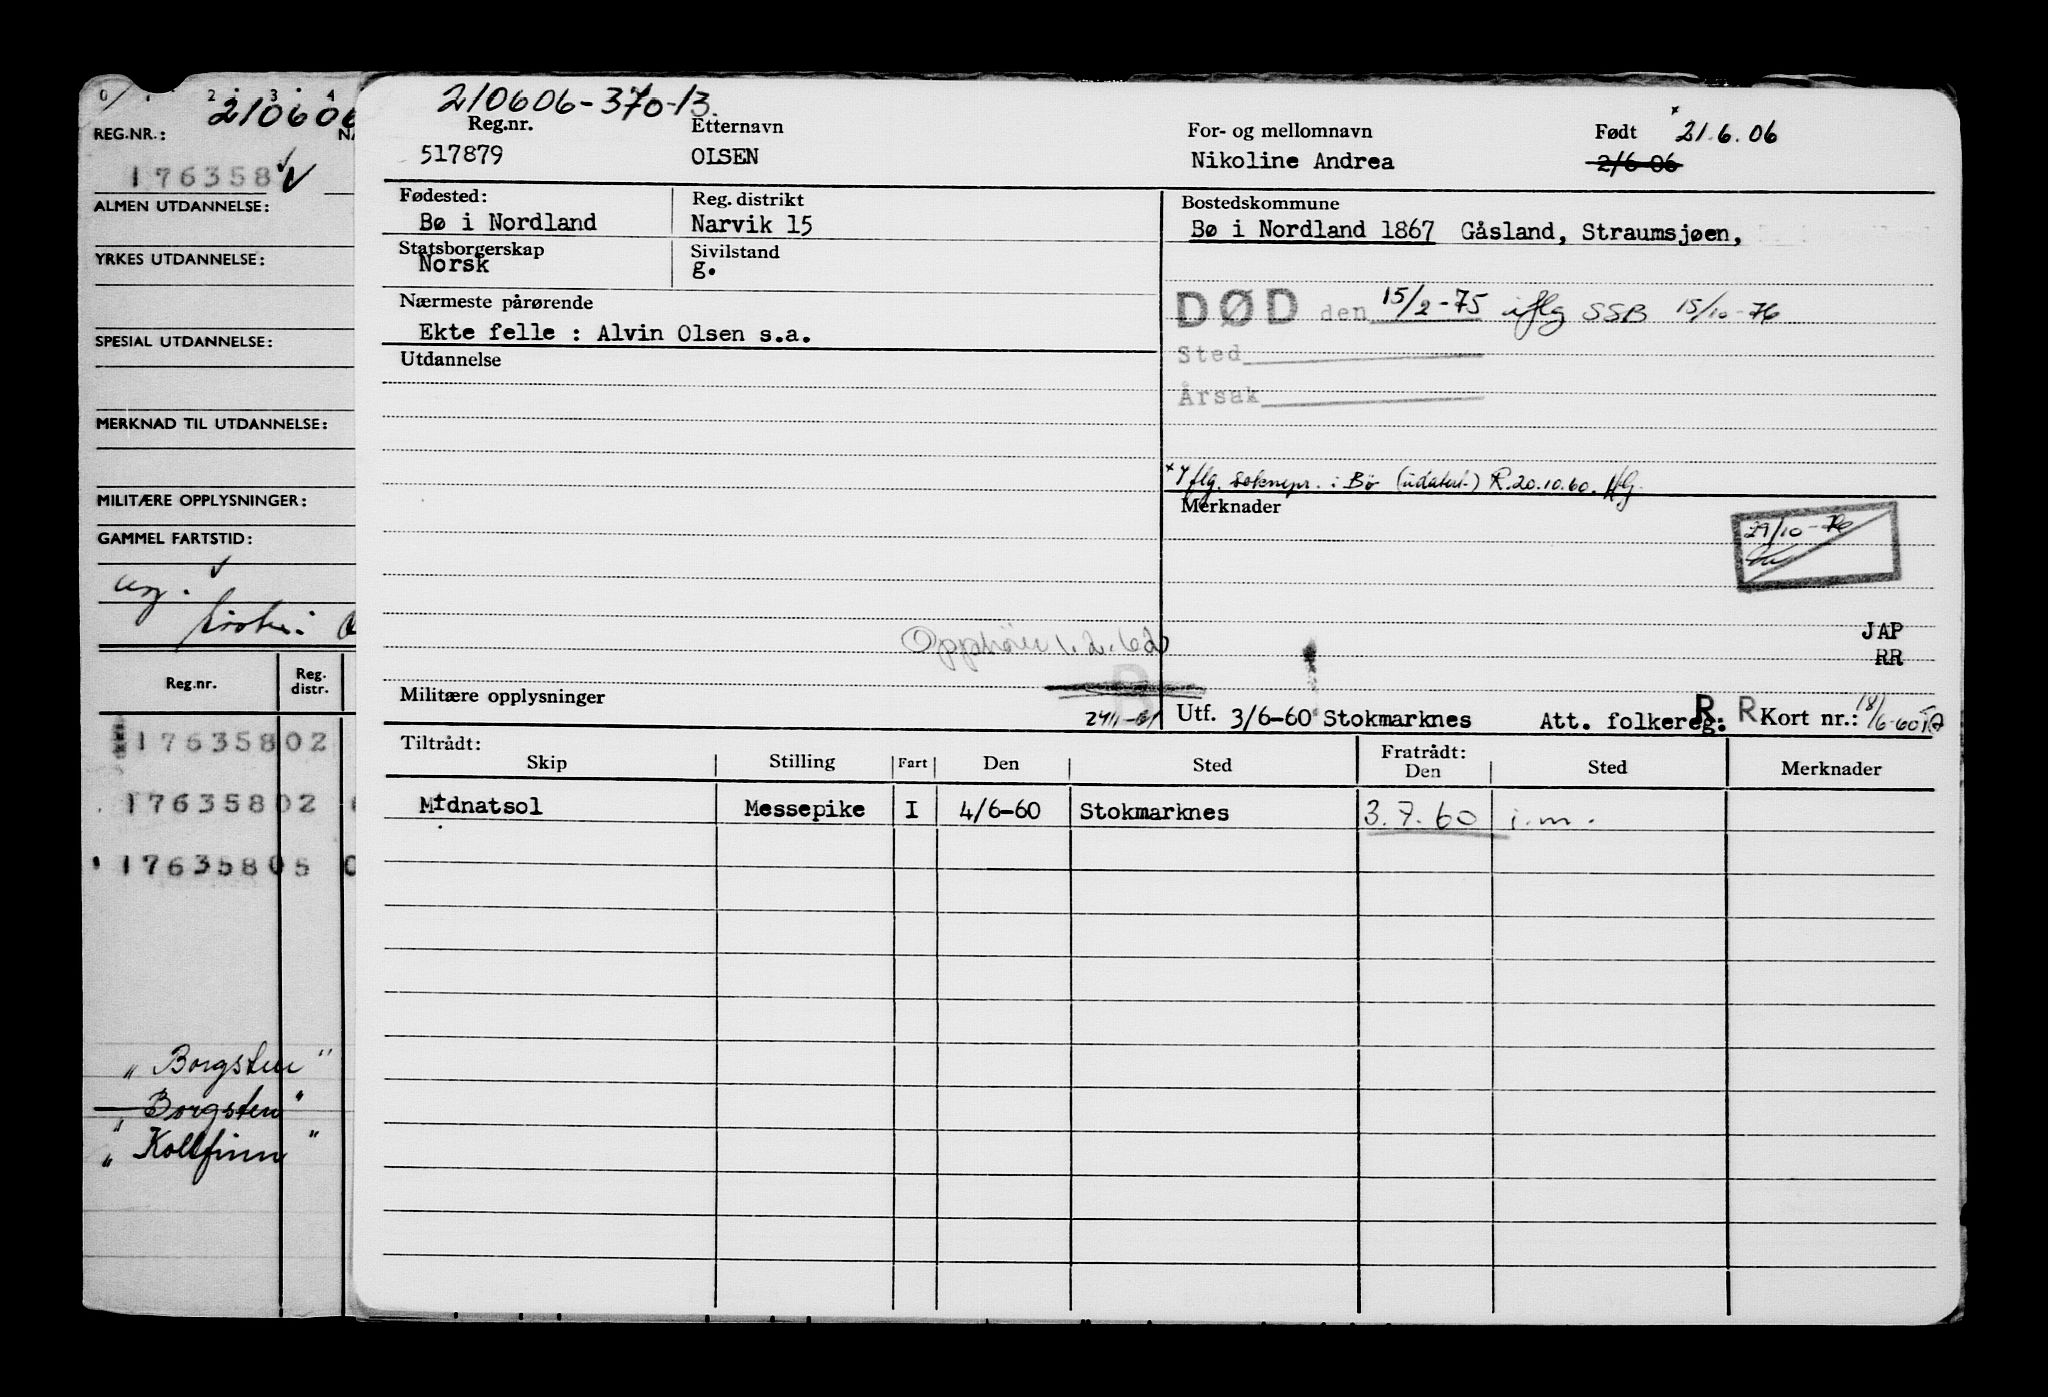 0 1 2 3 4
210606
REG.NR.:
176358
ALMEN UTDANNELSE:
YRKES UTDANNELSE:
SPESIAL UTDANNELSE:
MERKNAD TIL UTDANNELSE:
MILITÆRE OPPLYSNINGER:
GAMMEL FARTSTID:
Reg.nr. Reg. distr.
17635802
17635802
17635805 0
„ Borgsten "
„ Borgsten "
„ Kollfinn "
210606-370-13.
Reg.nr. Etternavn For- og mellomnavn Født × 21.6.06
517879 OLSEN Nikoline Andrea 2/6-06
Fødested: Reg. distrikt Bostedskommune
Bø i Nordland Narvik 15 Bø i Nordland 1867 Gåsland, Straumsjøen,
Statsborgerskap Sivilstand
Norsk g.
Nærmeste pårørende
DØD den 15/2-75 iflg SSB 15/10-76
Ekte felle : Alvin Olsen s.a.
Utdannelse
Sted
Årsak
× Iflg. soknepr. i Bø (udatert) R.20.10.60.
Merknader
29/10-76
JAP
RR
Opphører 1.2.62
Militære opplysninger
R
Utf. 3/6-60 Stokmarknes Att. folkereg. R. R Kort nr.: 18/6-60
Tiltrådt: Fratrådt:
Skip Stilling Fart Den Sted Den Sted Merknader
Midnatsol Messepike I 4/6-60 Stokmarknes 3.7.60 i.m.